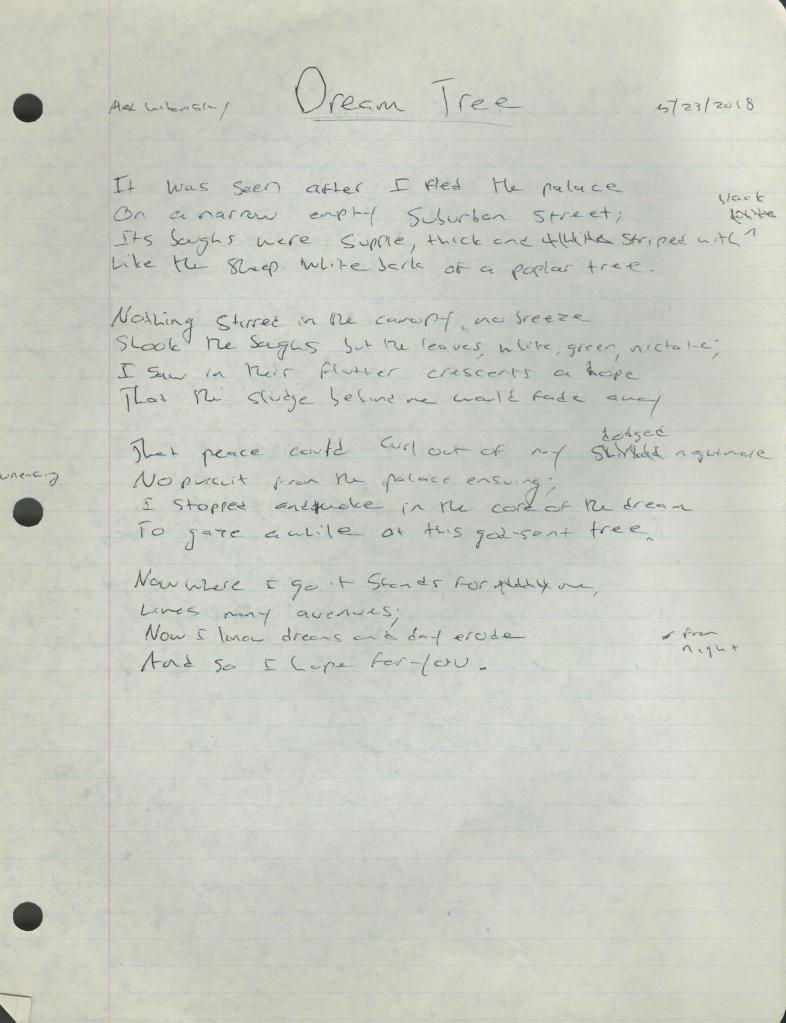 Alex
Dream Tree
5/23/2018
It was seen after I fled the palace
On a narrow empty suburban street;
black
Its boughs were supple, thick and striped with ^
Like the sheep white bark of a poplar tree.
Nothing stirred in the canopy, no breeze
Shook the boughs but the leaves, white, green, metallic;
I saw in their flutter crescents a hope
That the sludge behind me would fade away
dodged
That peace could curl out of my nightmare
No pursuit from the palace ensuing;
I stopped and woke in the core of the dream
To gaze awhile at this god-sent tree.
Now where I go it stands for me,
Lines many avenues;
Now I know dreams and day erode
from
night
And so I hope for you.